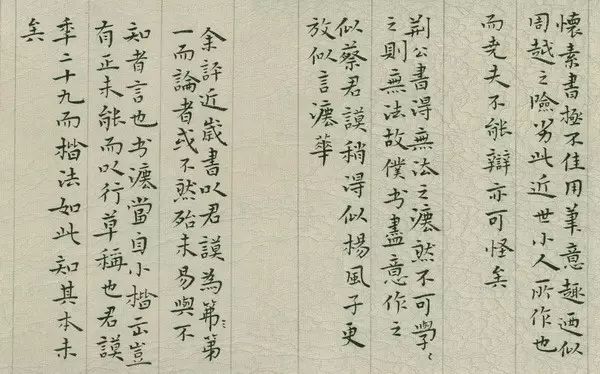 懷素書極不佳用筆意趣迺似
周越之險劣此近世小人所作也
而尭夫不能辯亦可怪矣
荆公書得無法之灋然不可學〻
之則無法故僕书盡意作之
似蔡君謨稍得似楊風子更
放似言灋華
余評近歲書以君謨為第第
一而論者或不然殆未易與不
知者言也书灋當自小楷出豈
有正未能而以行草稱也君謨
秊二十九而楷法如此知其本末
矣